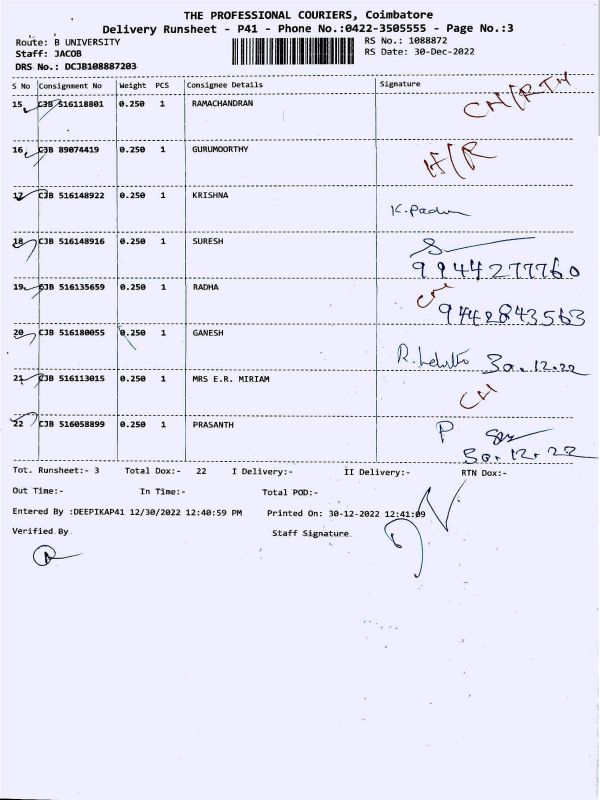 THE PROFESSIONAL COURIERS, Coimbatore
Delivery Runsheet - P41 - Phone No.:0422-3505555 - Page No.:3
Route: B UNIVERSITY RS No.: 1088872
Staff: JACOB RS Date: 30-Dec-2022
DRS No.: DCJB108887203
S No Consignment No Weight PCS Consignee Details Signature
15 CJB 516118801 0.250 1 RAMACHANDRAN CH/RTH
16 CJB 89074419 0.250 1 GURUMOORTHY H/R
17 CJB 516148922 0.250 1 KRISHNA K.Padm
18 CJB 516148916 0.250 1 SURESH S
9944277760
19 CJB 516135659 0.250 1 RADHA
9442843563
20 CJB 516180055 0.250 1 GANESH R. 30.12.22
21 CJB 516113015 0.250 1 MRS E.R. MIRIAM CH
22 CJB 516058899 0.250 1 PRASANTH P
30.12.22
Tot. Runsheet:- 3 Total Dox:- 22 I Delivery:- II Delivery:- RTN Dox:-
Out Time:- In Time:- Total POD:-
Entered By :DEEPIKAP41 12/30/2022 12:40:59 PM Printed On: 30-12-2022 12:41:09
Verified By Staff Signature